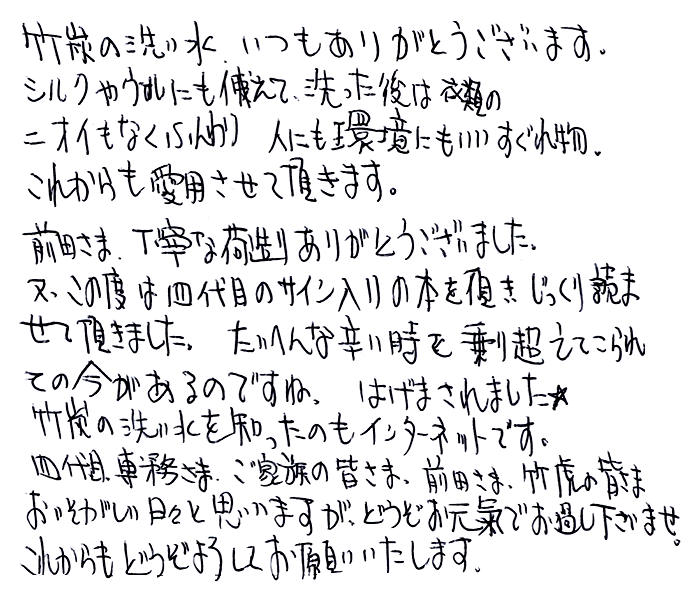 竹炭の洗い水、いつもありがとうございます。
シルクやウールにも使えて、洗った後は衣類の
ニオイもなくふんわり 人にも環境にもいいすぐれ物。
これからも愛用させて頂きます。
前田さま、丁寧な荷造りありがとうございました。
又、この度は四代目のサイン入りの本を頂き じっくり読ま
せて頂きました。 たいへんな辛い時を乗り超えてこられ
ての今があるのですね、 はげまされました☆
竹炭の洗い水を知ったのもインターネットです。
四代目、専務さま、ご家族の皆さま、前田さま、竹虎の皆さま
おいそがしい日々と思いますが、どうぞお元氣でお過し下さいませ。
これからもどうぞよろしくお願いいたします。